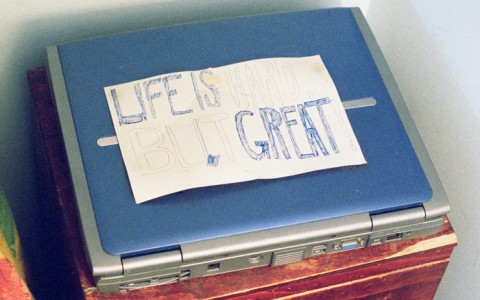 LIFE IS HARD,
BUT GREAT